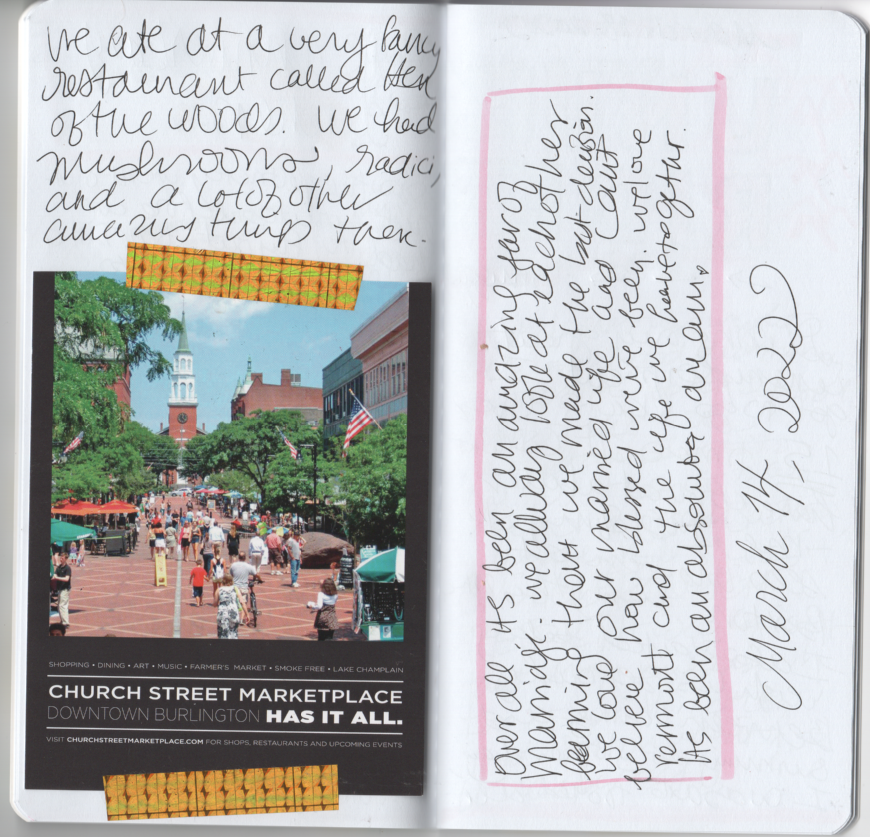 we ate at a very fancy
restaurant called Hen
of the woods. We had
mushrooms, radici,
and a lot of other
amazing things there.
SHOPPING • DINING • ART • MUSIC • FARMER'S MARKET • SMOKE FREE • LAKE CHAMPLAIN
CHURCH STREET MARKETPLACE
DOWNTOWN BURLINGTON HAS IT ALL.
VISIT CHURCHSTREETMARKETPLACE.COM FOR SHOPS, RESTAURANTS AND UPCOMING EVENTS
Over all its been an amazing year of
marriage. we always look at each other
beaming that we made the best decision.
we love our married life and can't
believe how blessed we've been. we love
Vermont and the life we have together.
Its been an absolute dream.
March 14, 2022